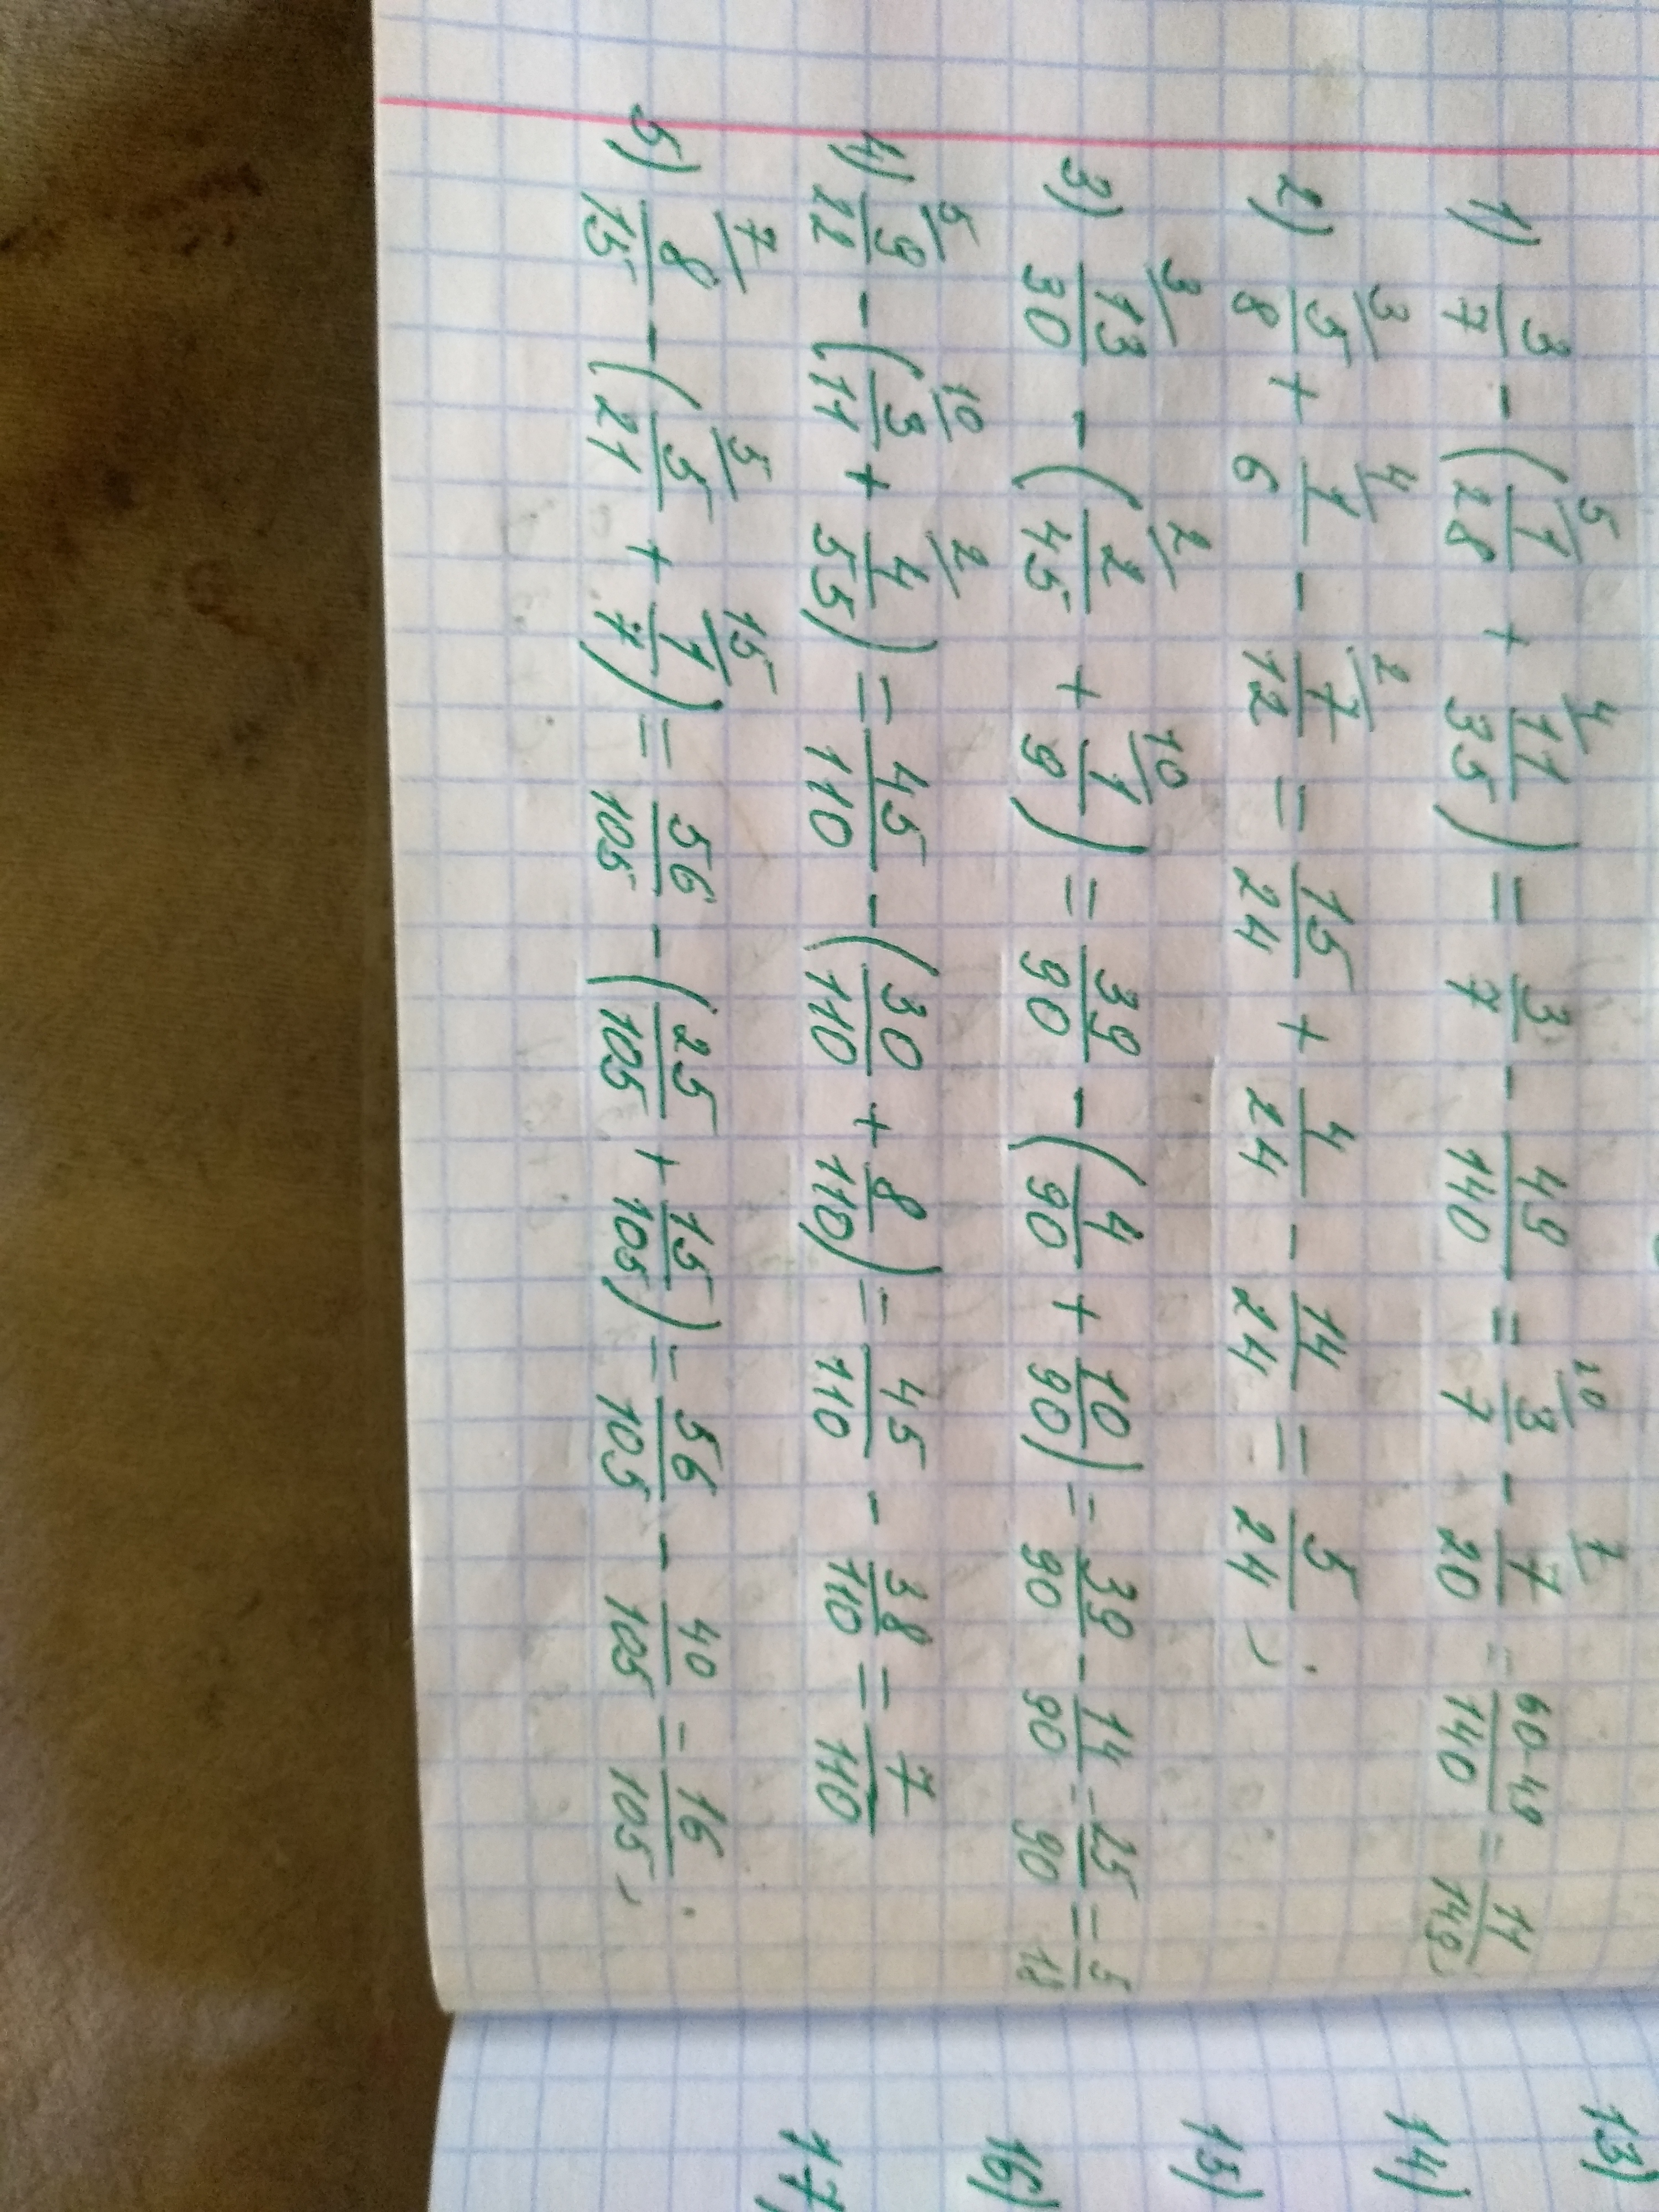 1) 3/7 - (⁵⁾1/28 + ⁴⁾11/35) = 3/7 - 49/140 = ²⁰⁾3/7 - ⁷⁾7/20 = 60-49/140 = 11/140;
2) ³⁾5/8 + ⁴⁾1/6 - ²⁾7/12 = 15/24 + 4/24 - 14/24 = 5/24;
3) ³⁾13/30 - (²⁾2/45 + ¹⁰⁾1/9) = 39/90 - (4/90 + 10/90) = 39/90 - 14/90 = 25/90 = 5/18
4) ⁵⁾9/22 - (¹⁰⁾3/11 + ²⁾4/55) = 45/110 - (30/110 + 8/110) = 45/110 - 38/110 = 7/110
5) ⁷⁾8/15 - (⁵⁾5/21 + ¹⁵⁾1/7) = 56/105 - (25/105 + 15/105) = 56/105 - 40/105 = 16/105;
13)
14)
15)
16)
17)